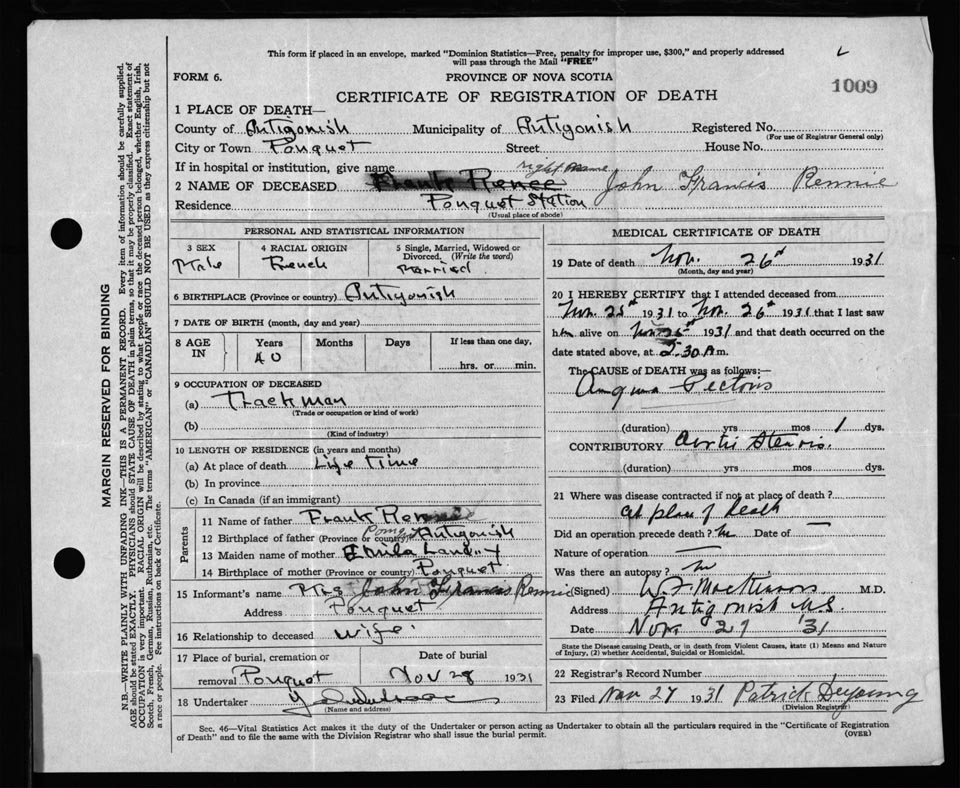 This form if placed in an envelope, marked "Dominion Statistics—Free, penalty for improper use, $300," and properly addressed
will pass through the Mail "FREE"
FORM 6.
PROVINCE OF NOVA SCOTIA
1009
CERTIFICATE OF REGISTRATION OF DEATH
1 PLACE OF DEATH—
County of Antigonish Municipality of Antigonish Registered No.
(For use of Registrar General only)
City or Town Ponquet Street House No.
If in hospital or institution, give name
right name
2 NAME OF DECEASED Frank Renee John Francis Rennie
Residence Ponquet Station
(Usual place of abode)
PERSONAL AND STATISTICAL INFORMATION
3 SEX
Male
4 RACIAL ORIGIN
French
5 Single, Married, Widowed or
Divorced. (Write the word)
Married
6 BIRTHPLACE (Province or country) Antigonish
7 DATE OF BIRTH (month, day and year)
8 AGE
IN
Years
40
Months
Days
If less than one day,
hrs. or min.
9 OCCUPATION OF DECEASED
(a) Trackman
(Trade or occupation or kind of work)
(b)
(Kind of industry)
10 LENGTH OF RESIDENCE (in years and months)
(a) At place of death Life time
(b) In province
(c) In Canada (if an immigrant)
Parents
11 Name of father Frank Rennie
12 Birthplace of father (Province or country) Antigonish
13 Maiden name of mother Emila Landry
14 Birthplace of mother (Province or country) Ponquet
15 Informant's name Mrs John Francis Rennie
Address Ponquet
16 Relationship to deceased wife
17 Place of burial, cremation or
removal Ponquet
Date of burial
Nov 28 1931
18 Undertaker
(Name and address)
MEDICAL CERTIFICATE OF DEATH
19 Date of death Nov. 26th 1931
(Month, day and year)
20 I HEREBY CERTIFY that I attended deceased from
Nov. 25th 1931 to Nov. 26th 1931 that I last saw
him alive on Nov 25th 1931 and that death occurred on the
date stated above, at 5.30 A m.
The CAUSE of DEATH was as follows:
Angina Pectoris
(duration) yrs mos 1 dys.
CONTRIBUTORY
(duration) yrs mos dys.
21 Where was disease contracted if not at place of death?
At place of Death
Did an operation precede death? no Date of —
Nature of operation —
Was there an autopsy? no
(Signed) W. F. MacKinnon M.D.
Address Antigonish N.S.
Date Nov 27 '31
State the Disease causing Death, or in death from Violent Causes, state (1) Means and Nature
of Injury, (2) whether Accidental, Suicidal or Homicidal.
22 Registrar's Record Number
23 Filed Nov 27 1931 Patrick DeYoung
(Division Registrar)
Sec. 46—Vital Statistics Act makes it the duty of the Undertaker or person acting as Undertaker to obtain all the particulars required in the "Certificate of Registration
of Death" and to file the same with the Division Registrar who shall issue the burial permit.
(OVER)
MARGIN RESERVED FOR BINDING
N.B.—WRITE PLAINLY WITH UNFADING INK—THIS IS A PERMANENT RECORD. Every item of information should be carefully supplied.
AGE should be stated EXACTLY. PHYSICIANS should STATE CAUSE OF DEATH in plain terms, so that it may be properly classified. Exact statement of
OCCUPATION is very important. RACIAL ORIGIN will be described by stating to what people or race the deceased person belonged, whether English, Irish,
Scotch, French, German, Russian, Ruthenian, etc. The terms "AMERICAN" or "CANADIAN" SHOULD NOT BE USED as they express citizenship but not
a race or people. See instructions on back of Certificate.